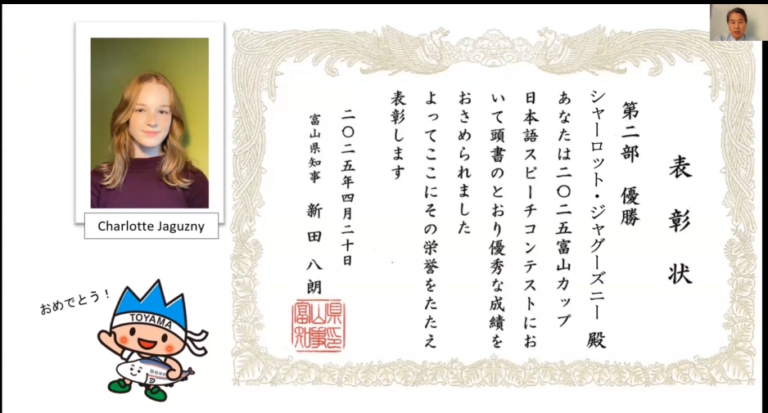 Charlotte Jaguzny
おめでとう！
TOYAMA
表彰状
第二部 優勝
シャーロット・ジャグーズニー 殿
あなたは二〇二五富山カップ
日本語スピーチコンテストにお
いて頭書のとおり優秀な成績を
おさめられました
よってここにその栄誉をたたえ
表彰します
二〇二五年四月二十日
富山県知事 新田八朗
富山県
知事印